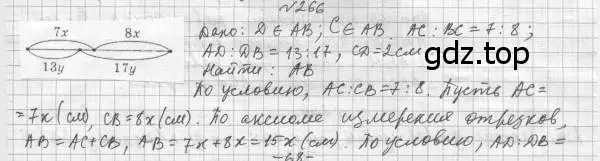 №266
7x 8x
13y 17y
Дано: D ∈ AB; C ∈ AB. AC : BC = 7 : 8;
AD : DB = 13 : 17, CD = 2см
Найти: AB
По условию, AC : CB = 7 : 8. Пусть AC =
= 7x (см), CB = 8x (см). По аксиоме измерения отрезков,
AB = AC + CB, AB = 7x + 8x = 15x (см). По условию, AD : DB =
-68-
gdz.top